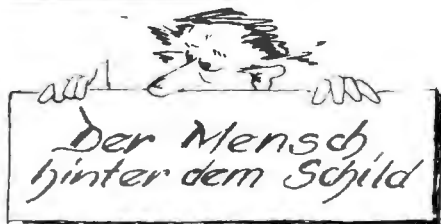 Der Mensch
hinter dem Schild